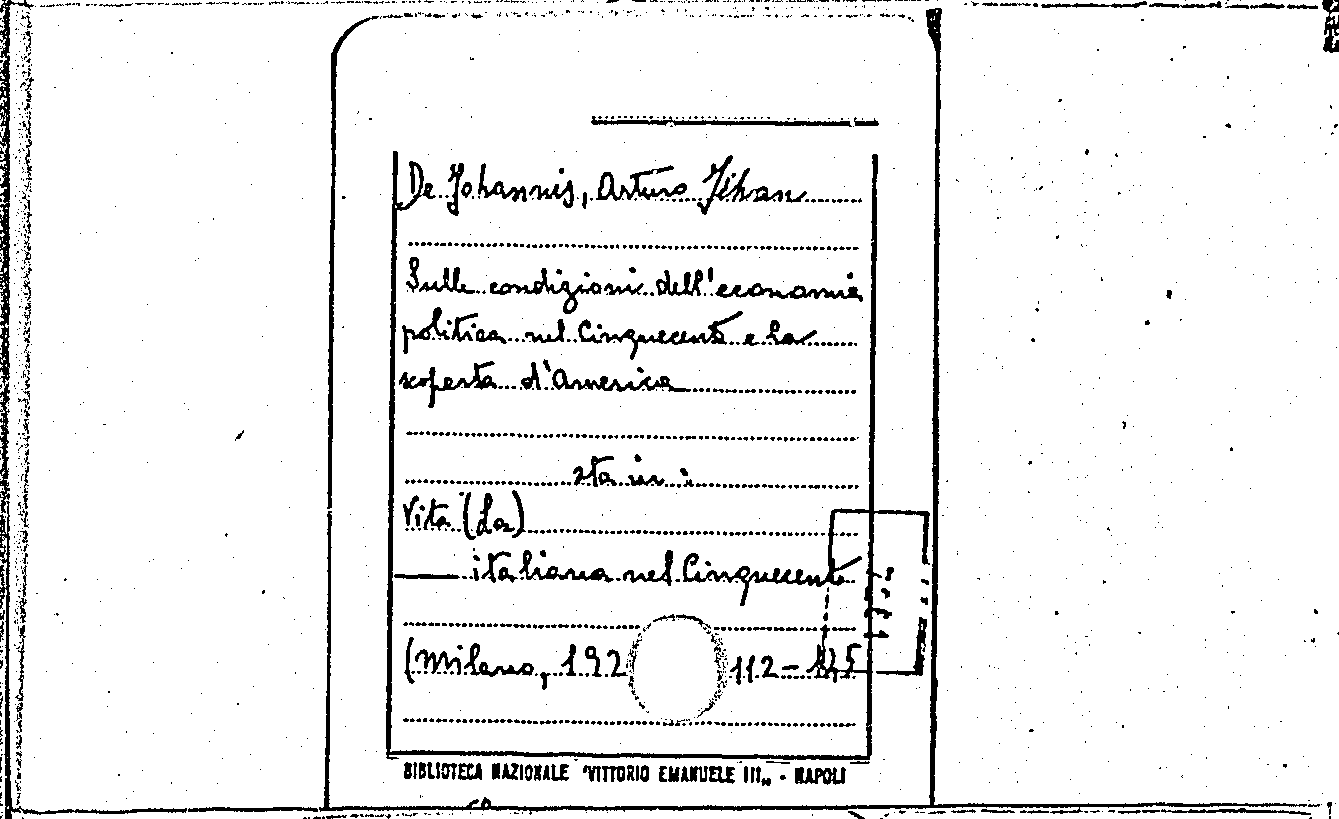 De Johannis, Arturo Jéhan
Sulle condizioni dell'economia
politica nel Cinquecento e la
scoperta d'America
sta in:
Vita (La)
—— italiana nel Cinquecento
(Milano, 192 112-
BIBLIOTECA NAZIONALE "VITTORIO EMANUELE III„ - NAPOLI